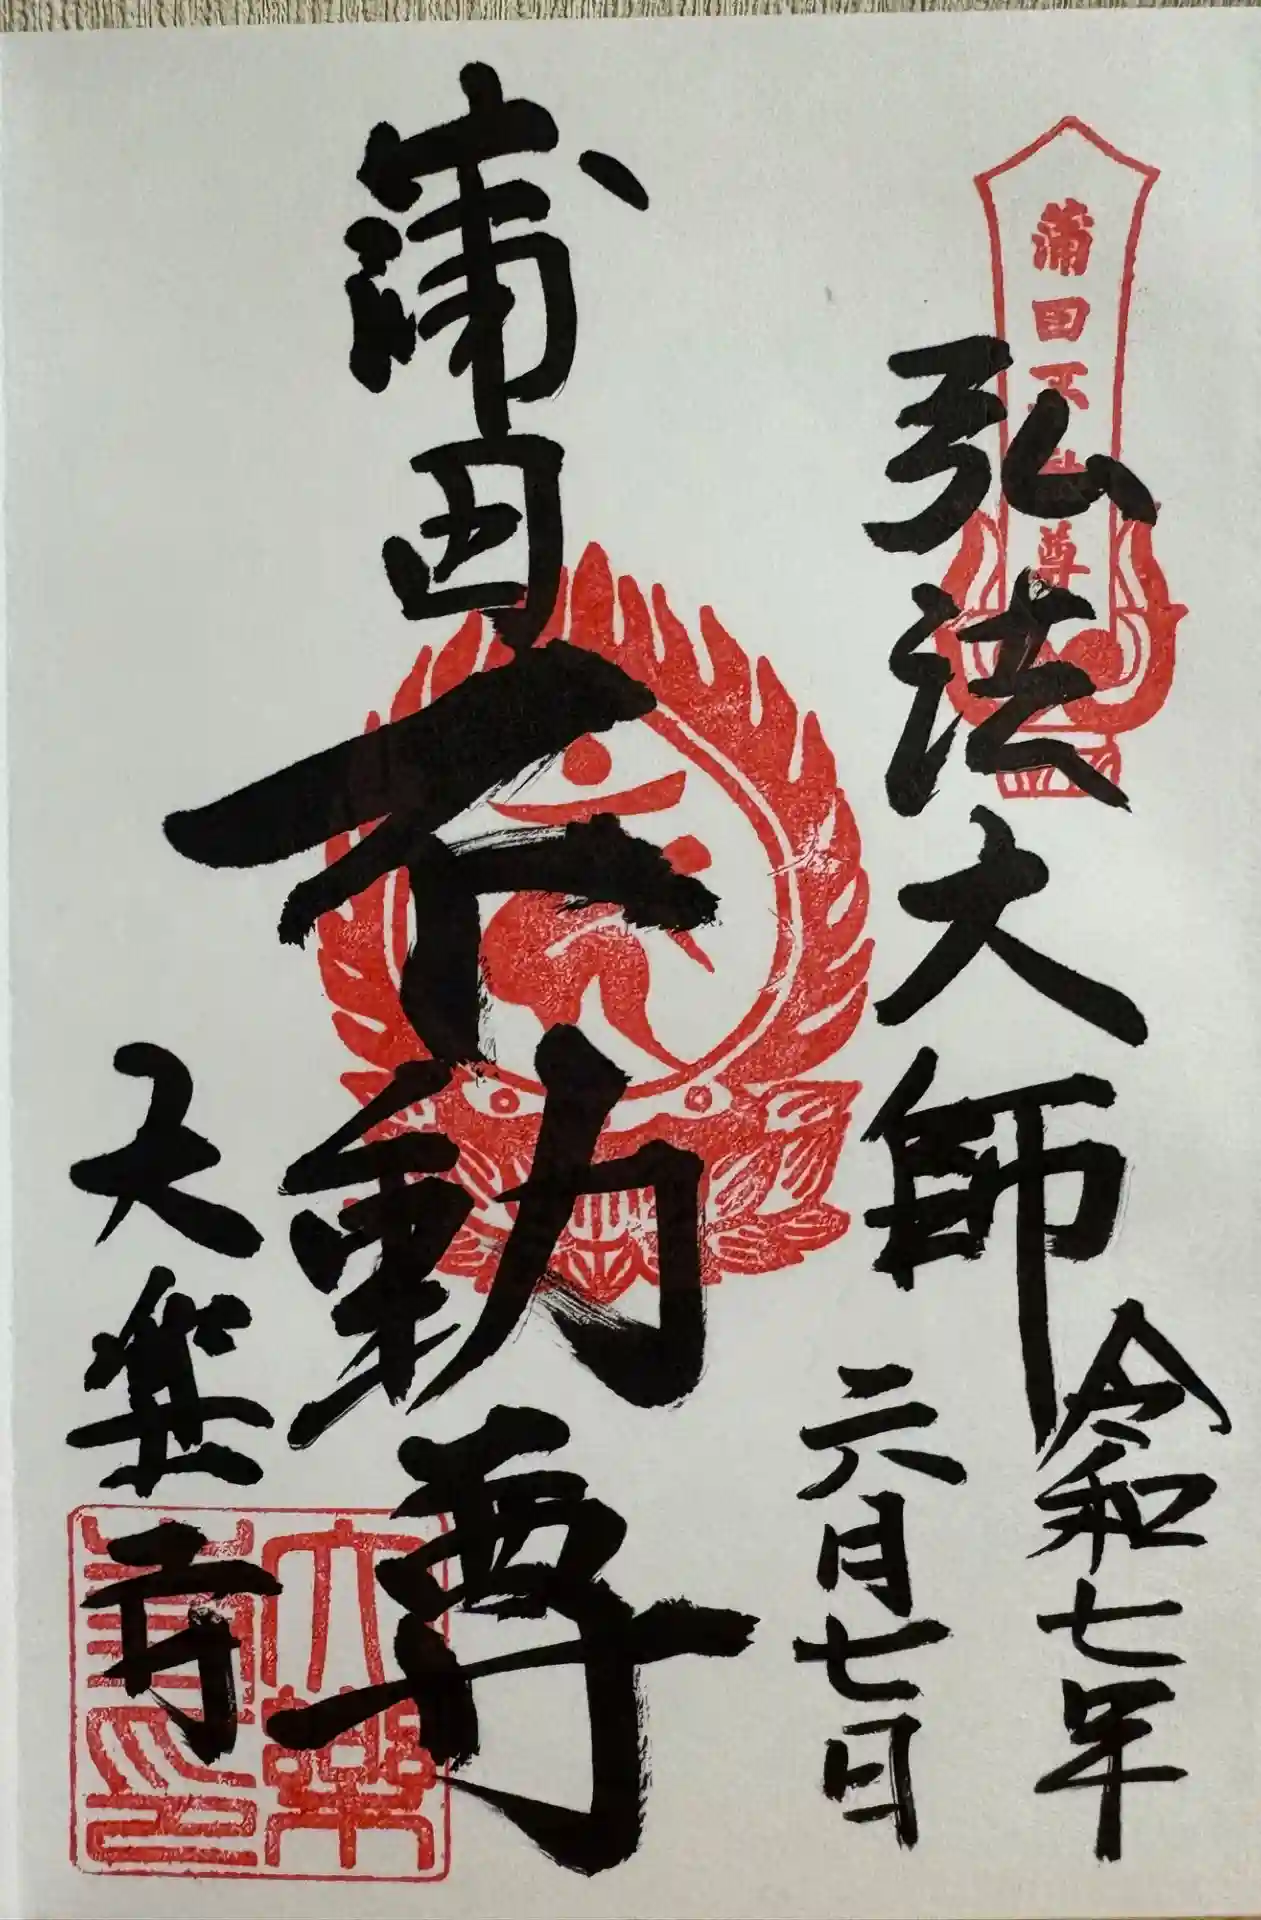 蒲田不動尊
弘法大師
令和七年
六月七日
蒲田不動尊
大楽寺
大楽
寺印